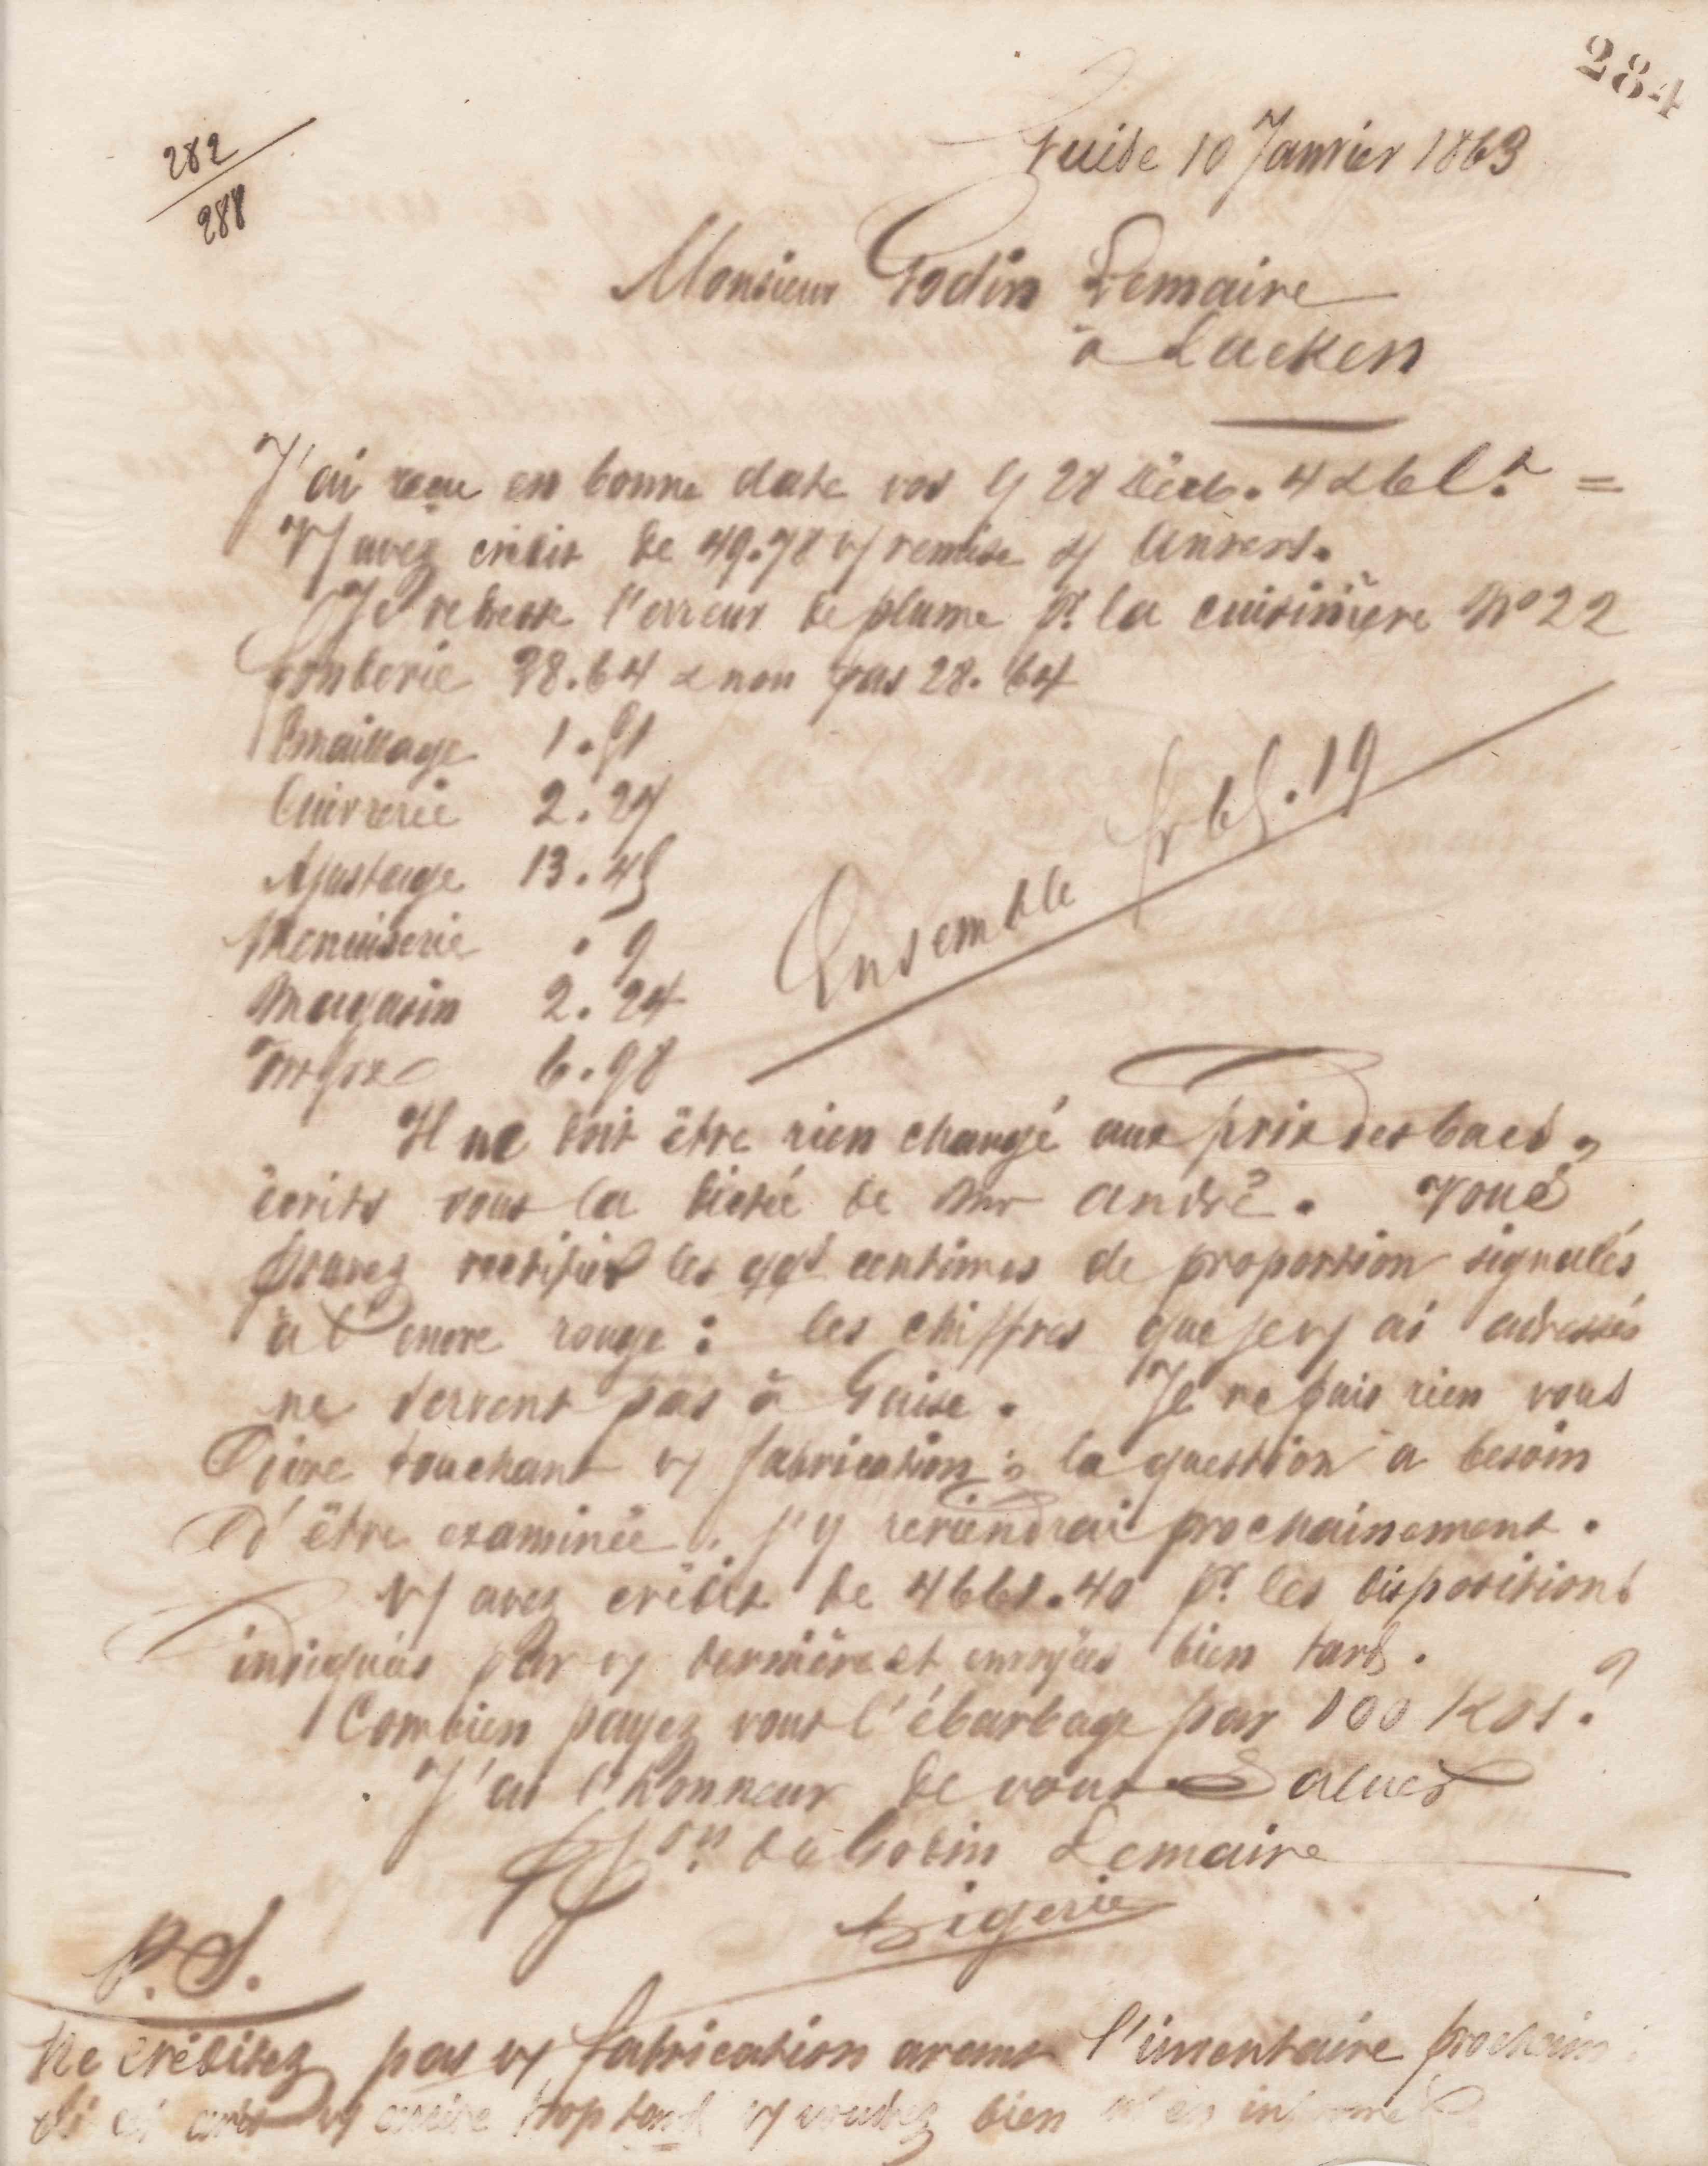 284
282
288
Guise 10 Janvier 1863
Monsieur Godin Lemaire
à Laeken
J'ai reçu en bonne date vos l/ 28 Décb. 4 & 6 Ct =
V/ avez crédit de 49.78 v/ remise s/ Anvers.
Je redresse l'erreur de plume pr la cuisinière No 22
fonderie 38.64 & non pas 28.64
Emaillage 1.51
Cuivrerie 2.24
Ajustage 13.45
Menuiserie . 9
Magasin 2.24
6.98
Ensemble fr 65.19
Il ne doit être rien changé aux prix des bacs,
écrits sous la dictée de Mr André. Vous
pouvez rectifier les qqs centimes de proportion signalés
à l'encre rouge : les chiffres que je v/ ai adressés
ne servent pas à Guise. Je ne puis rien vous
dire touchant v/ fabrication ; la question a besoin
d'être examinée. j'y reviendrai prochainement.
V/ avez crédit de 4661.40 pr les dispositions
indiquées par v/ dernière et envoyées bien tard.
Combien payez vous l'ébarbage par 100 Kos ?
J'ai l'honneur de vous saluer
Pr Godin Lemaire
P.S.
Ne créditez pas v/ fabrication avant l'inventaire prochain
si v/ écrire trop tard v/ voudrez bien m'en informer